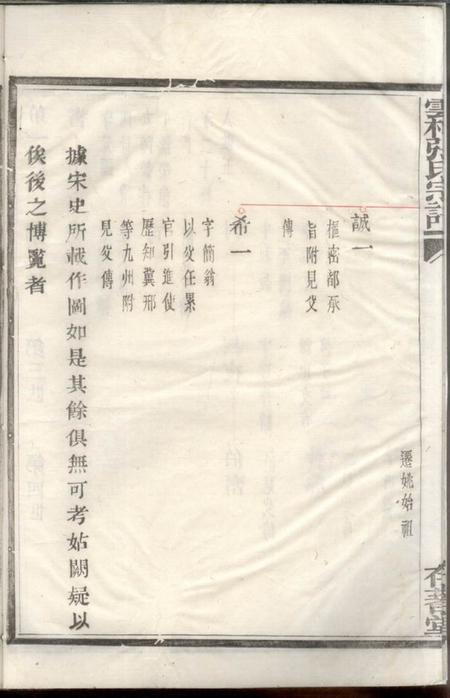 遷姚始祖
誠一
樞密都承
旨附見父
傳
希一
字簡翁
以父任累
官引進使
歷知冀邢
等九州附
見父傳
據宋史所載作圖如是其餘俱無可考姑闕疑以
俟後之博覽者